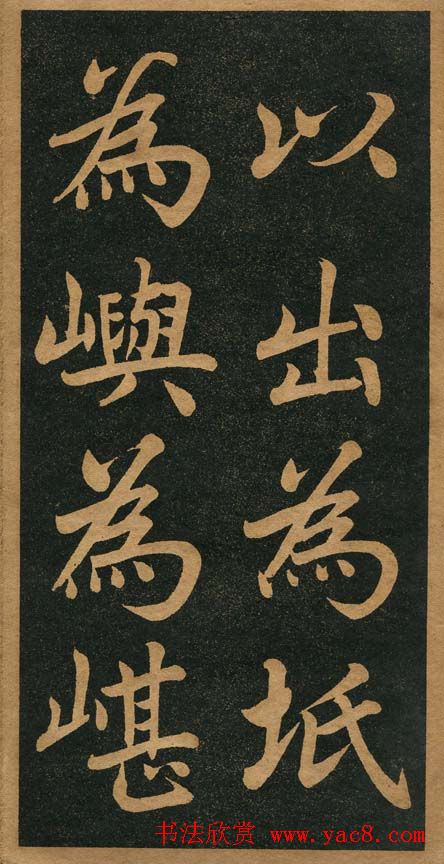 以出为坻
為嶼為嵁
书法欣赏 www.yac8.com